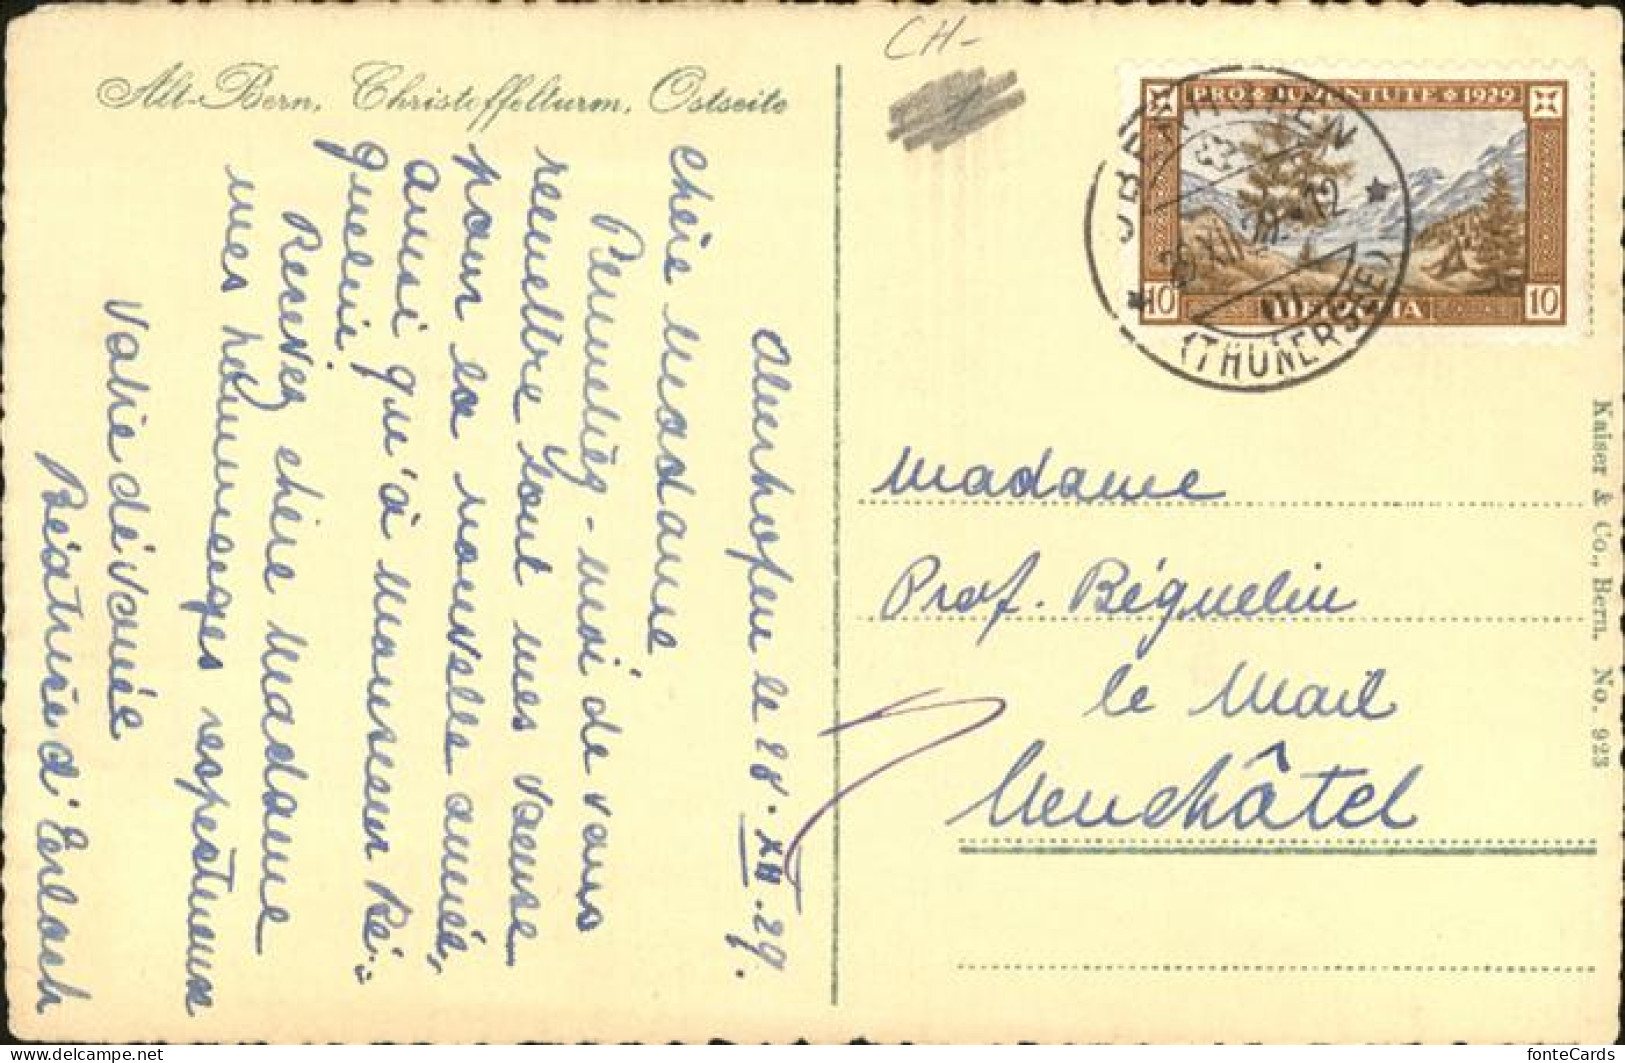 Alt-Bern, Christoffelturm, Ostseite
CH-
PRO JUVENTUTE 1929
10 HELVETIA 10
OBERHOFEN
(THUNERSEE)
28.XII.29-12
III
Kaiser & Co., Bern. No. 923
Oberhofen le 28.XII.29.
Chère Madame
Permettez-moi de vous
remettre tout mes vœuxe
pour la nouvelle année,
aussi qu'à Monsieur Bé-
guelin
Recevez chère Madame
mes hommages respectueux
Votre dévouée
Béatrice d'Erlach
Madame
Prof. Béguelin
le Mail
Neuchâtel
fonteCards